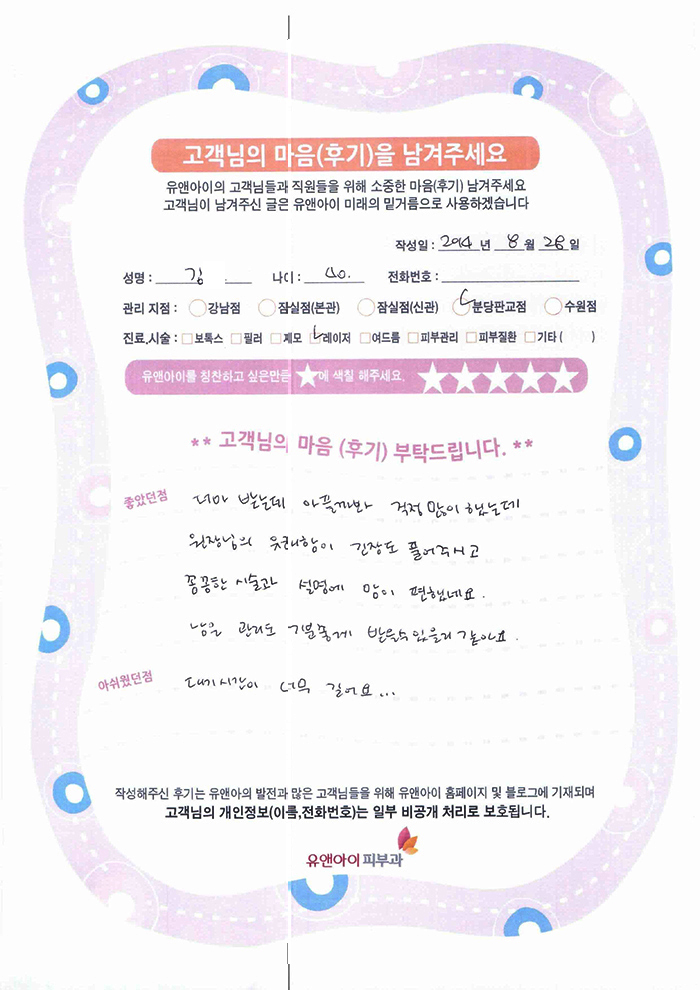 고객님의 마음(후기)을 남겨주세요
유앤아이의 고객님들과 직원들을 위해 소중한 마음(후기) 남겨주세요
고객님이 남겨주신 글은 유앤아이 미래의 밑거름으로 사용하겠습니다
작성일 : 2014 년 8 월 28 일
성명 : 김 나이 : 40. 전화번호 :
관리 지점 : 강남점 잠실점(본관) 잠실점(신관) 분당판교점 수원점
진료,시술 : 보톡스 필러 제모 레이저 여드름 피부관리 피부질환 기타 ( )
유앤아이를 칭찬하고 싶은만큼 ★에 색칠 해주세요. ★★★★★
** 고객님의 마음 (후기) 부탁드립니다. **
좋았던점 받는데 아플까봐 걱정 많이 했는데
원장님의 유쾌함이 긴장도 풀어주시고
꼼꼼한 시술과 설명에 맘이 편했네요.
남은 관리도 기분좋게 받을수 있을거 같아요.
아쉬웠던점 대기시간이 너무 길어요...
작성해주신 후기는 유앤아의 발전과 많은 고객님들을 위해 유앤아이 홈페이지 및 블로그에 기재되며
고객님의 개인정보(이름,전화번호)는 일부 비공개 처리로 보호됩니다.
유앤아이피부과